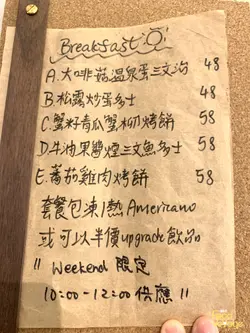 Breakfast
A. 大啡菇溫泉蛋三文治 48
B. 松露炒蛋多士 48
C. 蟹籽青瓜蟹柳烤餅 58
D. 牛油果醬煙三文魚多士 58
E. 蕃茄雞肉烤餅 58
套餐包凍/熱Americano
或可以半價upgrade飲品
" Weekend 限定
10:00-12:00 供應 "